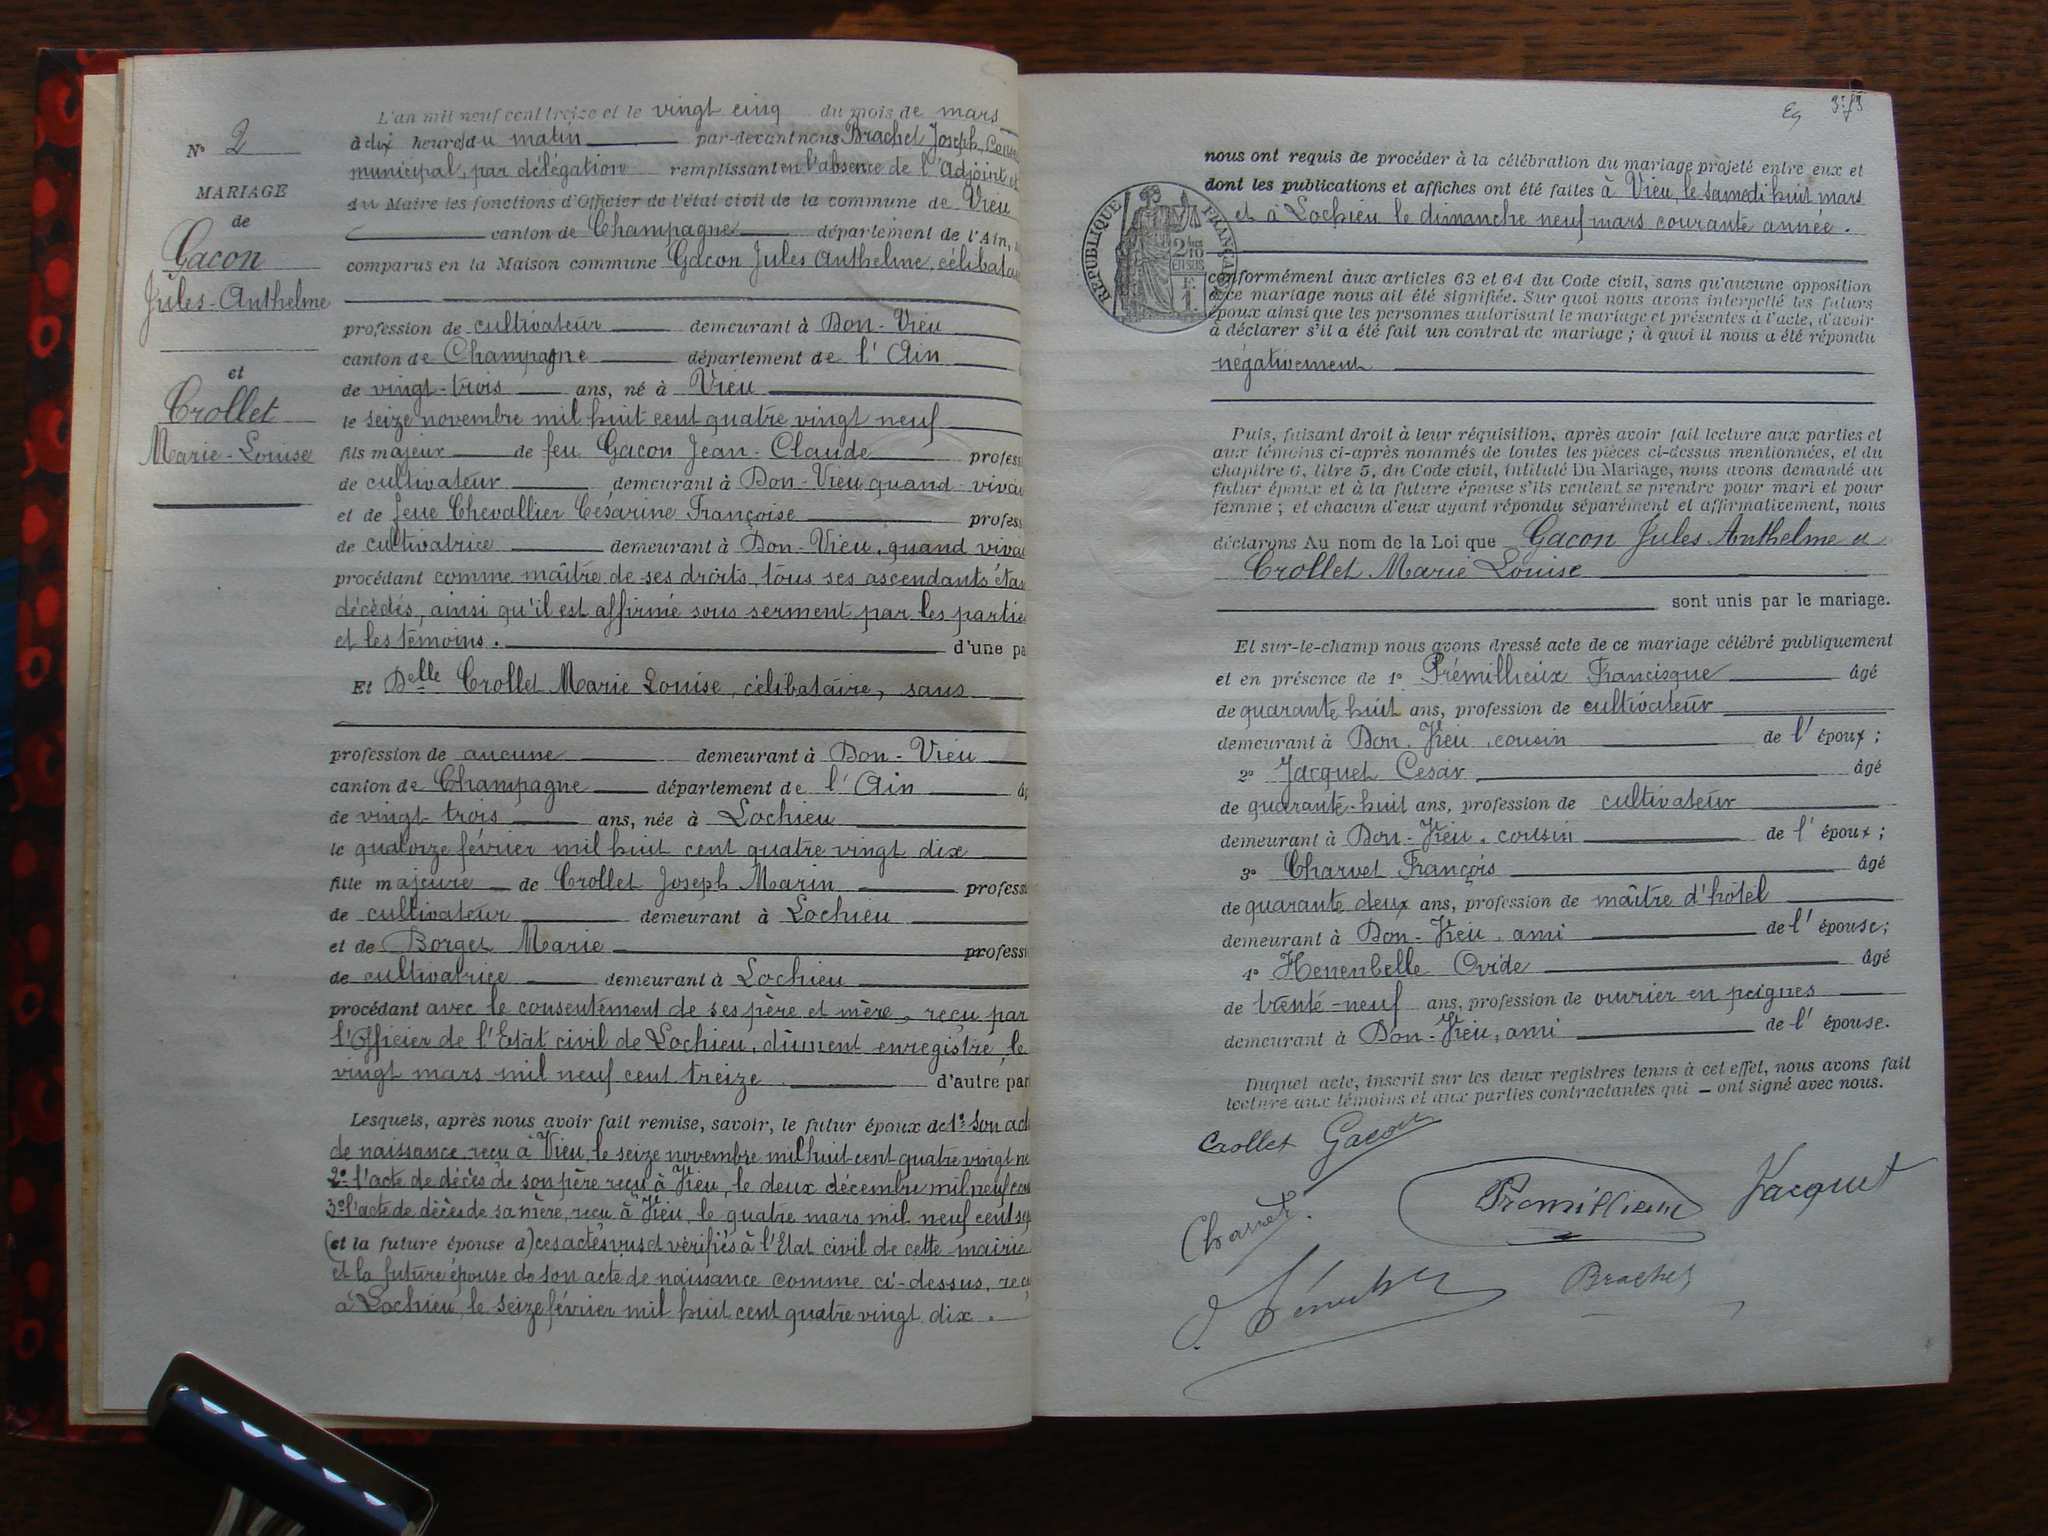 N° 2
MARIAGE
de
Gacon
Jules-Anthelme
et
Crollet
Marie-Louise
L'an mil neuf cent treize et le vingt cinq du mois de mars
à dix heures du matin par-devant nous Brachet Joseph,
municipal, par délégation remplissant en l'absence de l'Adjoint et
du Maire les fonctions d'Officier de l'état civil de la commune de Vieu
canton de Champagne département de l'Ain,
comparus en la Maison commune Gacon Jules Anthelme, célibatai
profession de cultivateur demeurant à Don-Vieu
canton de Champagne département de l'Ain
de vingt-trois ans, né à Vieu
le seize novembre mil huit cent quatre vingt neuf
fils majeur de feu Gacon Jean-Claude profess
de cultivateur demeurant à Don-Vieu quand viva
et de feue Chevallier Césarine Françoise profess
de cultivatrice demeurant à Don-Vieu, quand viva
procédant comme maître de ses droits, tous ses ascendants étan
décédés, ainsi qu'il est affirmé sous serment par les partie
et les témoins. d'une pa
Et Delle Crollet Marie Louise, célibataire, sans
profession de aucune demeurant à Don-Vieu
canton de Champagne département de l'Ain â
de vingt-trois ans, née à Lochieu
le quatorze février mil huit cent quatre vingt dix
fille majeure de Crollet Joseph Marin profess
de cultivateur demeurant à Lochieu
et de Borget Marie professi
de cultivatrice demeurant à Lochieu
procédant avec le consentement de ses père et mère, reçu par
l'Officier de l'Etat civil de Lochieu, dûment enregistré, le
vingt mars mil neuf cent treize d'autre par
Lesquels, après nous avoir fait remise, savoir, le futur époux de 1° Son act
de naissance, reçu à Vieu, le seize novembre mil huit cent quatre vingt ne
2° l'acte de décès de son père reçu à Vieu, le deux décembre mil neuf cen
3° l'acte de décès de sa mère, reçu à Vieu, le quatre mars mil neuf cent se
(et la future épouse d) ces actes vus et vérifiés à l'Etat civil de cette mairie
et la future épouse de son acte de naissance comme ci-dessus, reç
à Lochieu, le seize février mil huit cent quatre vingt dix.
RÉPUBLIQUE FRANÇAISE
2/10
EN SUS
F
1
nous ont requis de procéder à la célébration du mariage projeté entre eux et
dont les publications et affiches ont été faites à Vieu, le samedi huit mars
et à Lochieu le dimanche neuf mars courante année.
conformément aux articles 63 et 64 du Code civil, sans qu'aucune opposition
à ce mariage nous ait été signifiée. Sur quoi nous avons interpellé les futurs
époux ainsi que les personnes autorisant le mariage et présentes à l'acte, d'avoir
à déclarer s'il a été fait un contrat de mariage ; à quoi il nous a été répondu
négativement
Puis, faisant droit à leur réquisition, après avoir fait lecture aux parties et
aux témoins ci-après nommés de toutes les pièces ci-dessus mentionnées, et du
chapitre 6, titre 5, du Code civil, intitulé Du Mariage, nous avons demandé au
futur époux et à la future épouse s'ils veulent se prendre pour mari et pour
femme ; et chacun d'eux ayant répondu séparément et affirmativement, nous
déclarons Au nom de la Loi que Gacon Jules Anthelme et
Crollet Marie Louise
sont unis par le mariage.
Et sur-le-champ nous avons dressé acte de ce mariage célébré publiquement
et en présence de 1° Prémillieux Francisque âgé
de quarante huit ans, profession de cultivateur
demeurant à Don-Vieu, cousin de l'époux ;
2° Jacquet Cesar âgé
de quarante-huit ans, profession de cultivateur
demeurant à Don-Vieu, cousin de l'époux ;
3° Charvet François âgé
de quarante deux ans, profession de maître d'hôtel
demeurant à Don-Vieu, ami de l'épouse ;
4° Henenbelle Ovide âgé
de trente-neuf ans, profession de ouvrier en peignes
demeurant à Don-Vieu, ami de l'épouse.
Duquel acte, inscrit sur les deux registres tenus à cet effet, nous avons fait
lecture aux témoins et aux parties contractantes qui ont signé avec nous.
Crollet Gacon
Charvet Premillieux Jacquet
Brachet